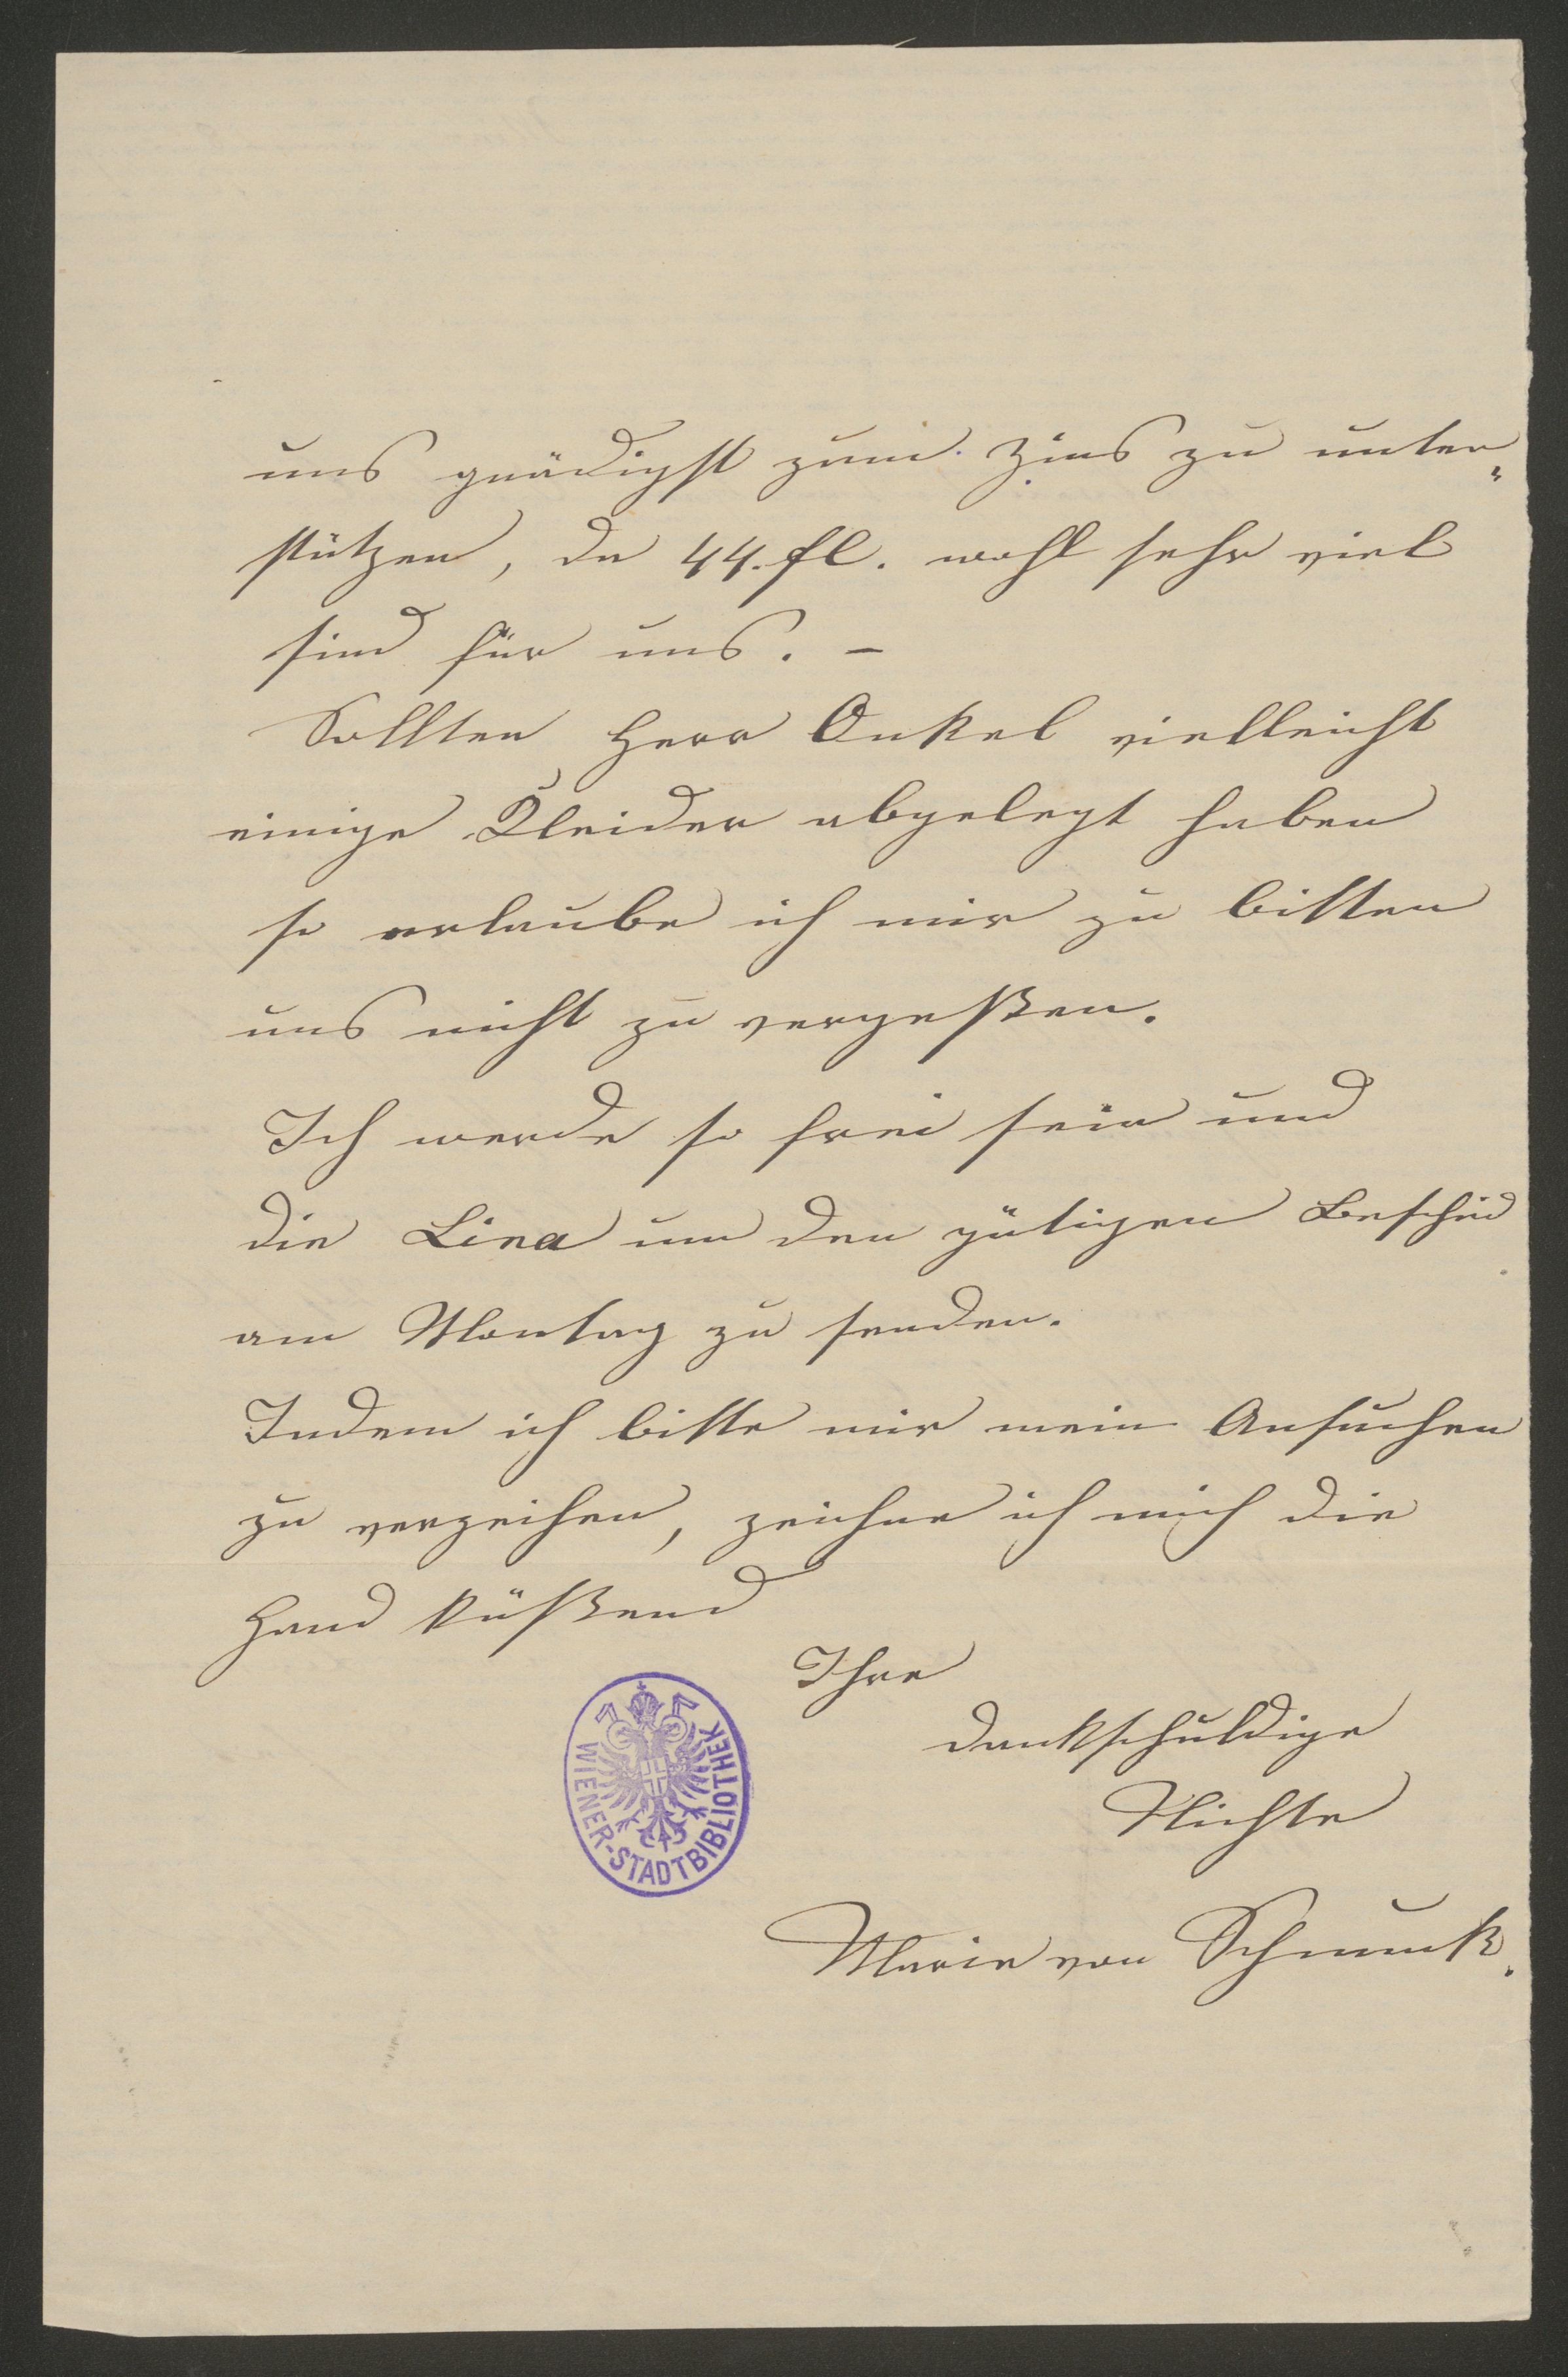 uns gnädigst zum Zins zu unter„
stützen, da 44. fl. wohl sehr viel
sind für uns. –
Sollten Herr Onkel vielleicht
einige Kleider abgelegt haben
so erlaube ich mir zu bitten
uns nicht zu vergeßen.
Ich werde so frei sein und
die Lina um den gütigen Bescheid
am Montag zu senden.
Indem ich bitte mir mein Ansuchen
zu verzeihen, zeichne ich mich die
Hand küßend
Ihre
dankschuldige
Nichte
Marie von Schmuck.
WIENER-STADTBIBLIOTHEK